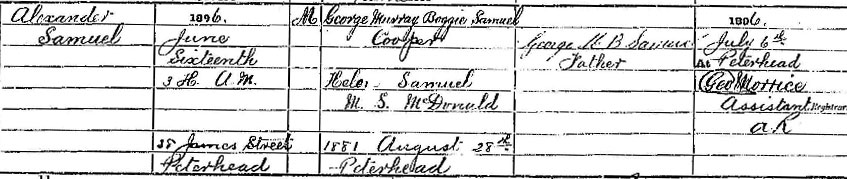 Alexander
Samuel
1896.
June
Sixteenth
3 H. A.M.
38 James Street
Peterhead
M
George Murray Boggie Samuel
Cooper
Helen Samuel
M. S. McDonald
1881 August 28th
Peterhead
George M B Samuel
Father
1896.
July 6th
At Peterhead
Geo Morrice
Assistant Registrar